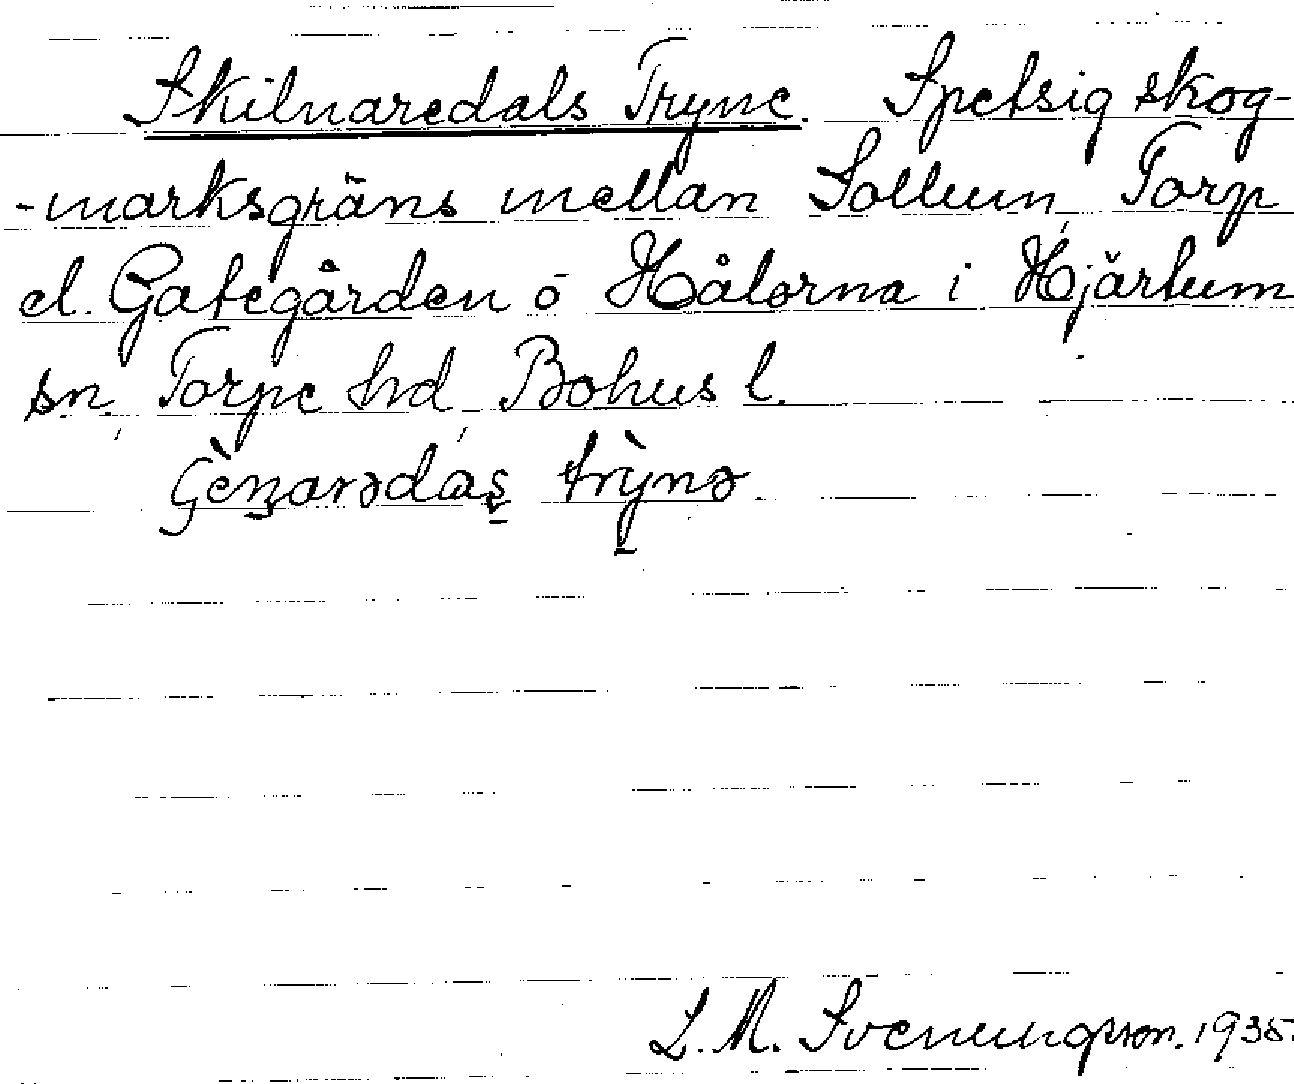 Skilnaredals Tryne. Spetsig skog-
-marksgräns mellan Sollum, Torp
el. Gategården ō Hålorna i Hjärtum
sn, Torpe hrd, Bohus l.
trỳnə
L. M. Svenungsson. 1935.